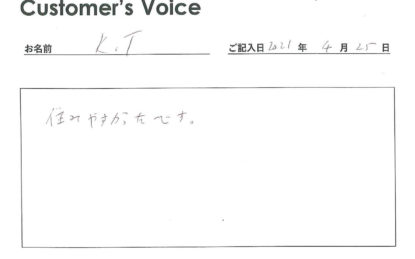 Customer's Voice
お名前 K.T ご記入日 2021 年 4 月 25 日
住みやすかったです。